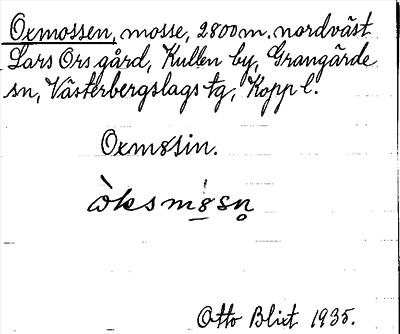 Oxmossen, mosse, 2800 m. nordväst
Lars Ors gård, Kullen by, Grangärde
sn, Västerbergslags tg, Kopp l.
Oxm8sin.
òksm8sn̥
Otto Blixt 1935.